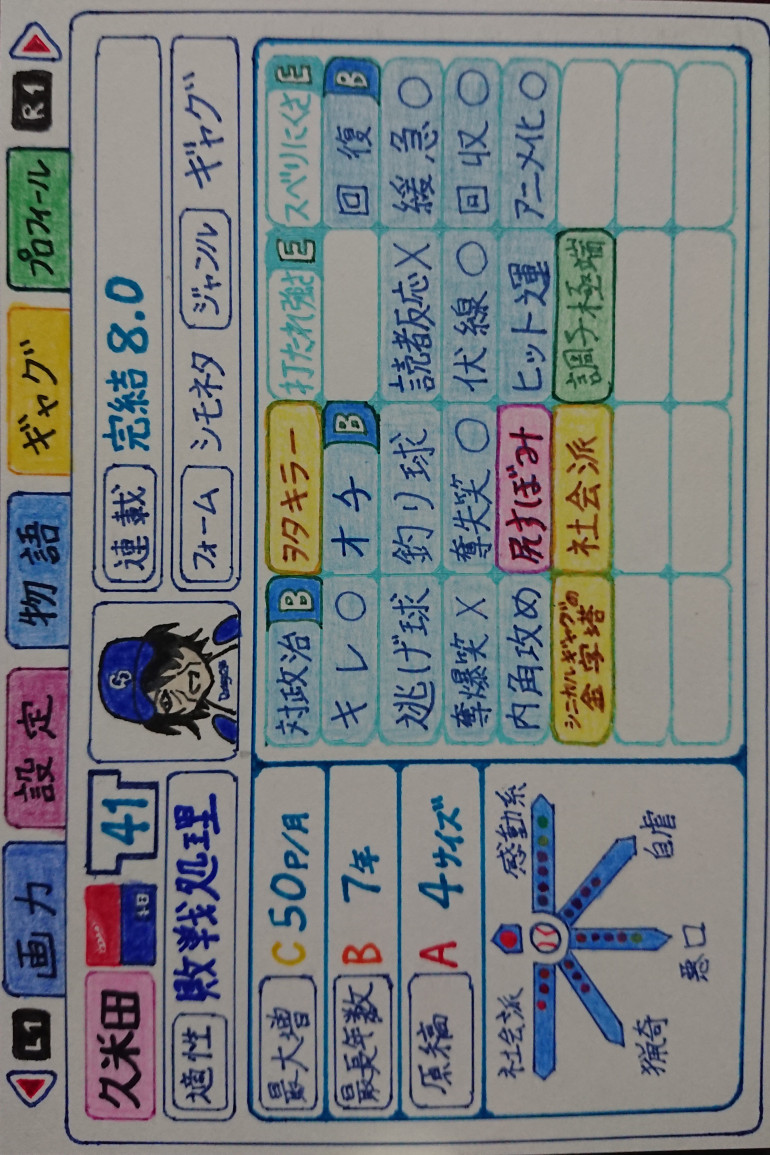 L1 画力 設定 物語 ギャグ プロフィール R1
久米田 41 連載 完結8.0
適性 敗戦処理 フォーム シモネタ ジャンル ギャグ
最大増 C 50P/月
最長年数 B 7年
原稿 A 4サイズ
社会派 感動系
猟奇 悪口 自虐
対政治 B ヲタキラー 打たれ強さ E スベリにくさ E
キレ○ オチ B 回復 B
逃げ球 釣り球 読者反応× 緩急○
奪爆笑× 奪失笑○ 伏線○ 回収○
内角攻め 尻すぼみ ヒット運 アニメ化○
シニカルギャグの金字塔 社会派 調子極端